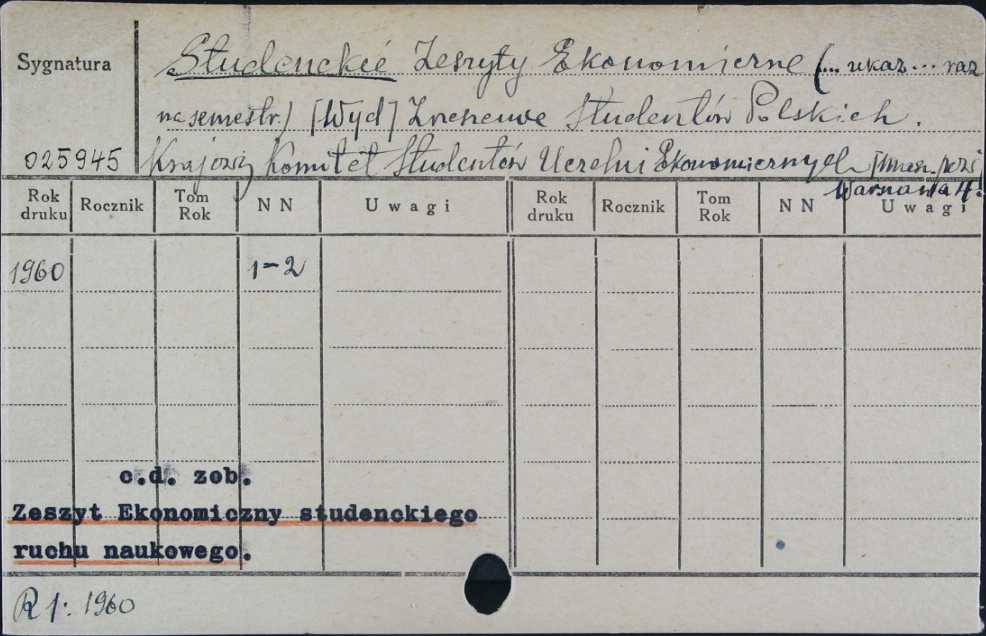 Sygnatura
Studenckie Zeszyty Ekonomiczne (... ukaz... raz
na semestr.) [Wyd] Zrzeszenie Studentów Polskich.
025945 Krajowy Komitet Studentów Uczelni Ekonomicznych
Warszawa 4°.
Rok druku Rocznik Tom Rok NN Uwagi Rok druku Rocznik Tom Rok NN Uwagi
1960 1-2
c.d. zob.
Zeszyt Ekonomiczny studenckiego
ruchu naukowego.
R 1: 1960